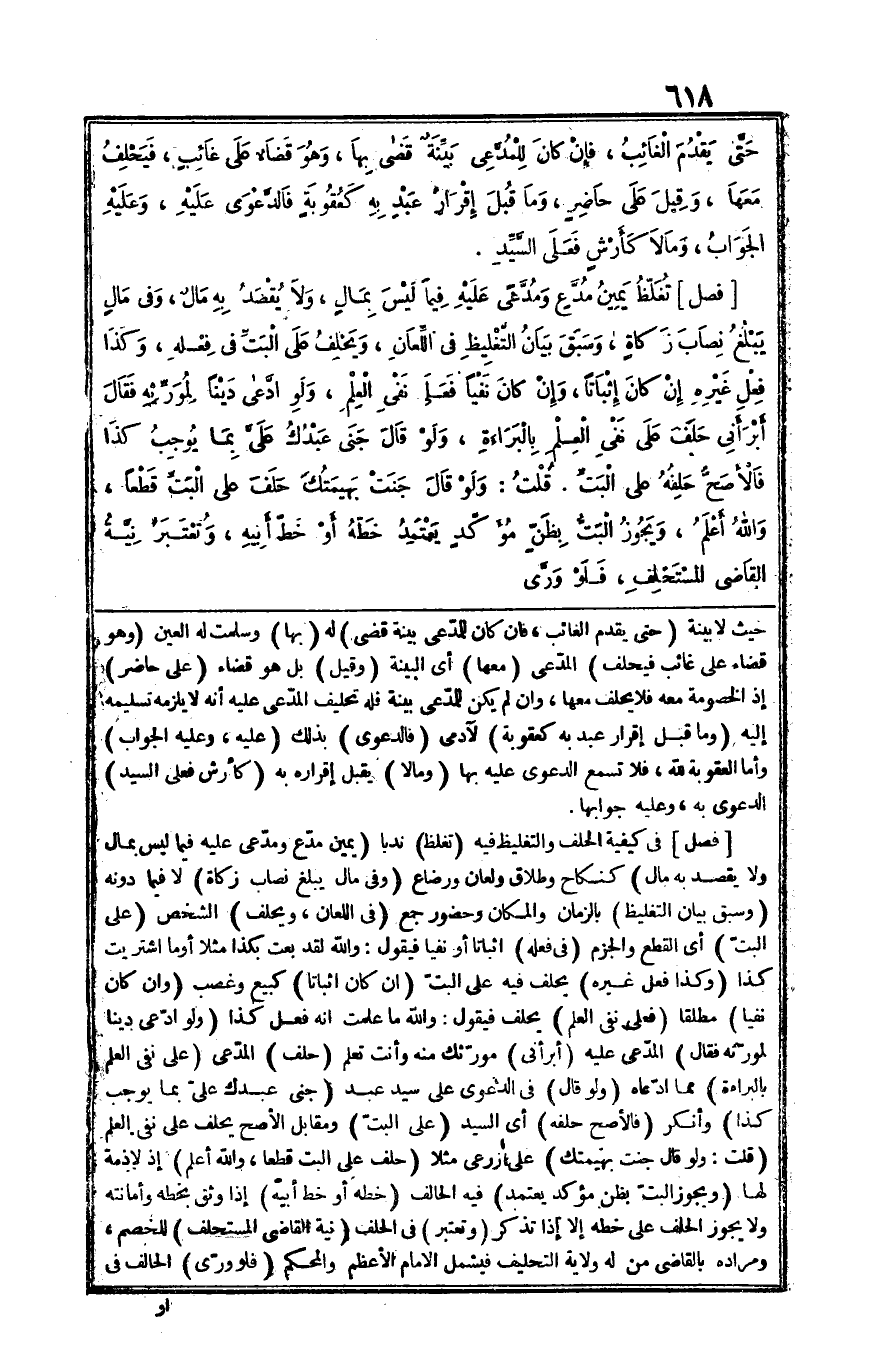 ٦١٨
حَتَّى يَقْدُمَ الْغَائِبُ ، فَإِنْ كَانَ لِلْمُدَّعِى بَيِّنَةٌ قَضَى بِهَا ، وَهُوَ قَضَاءٌ عَلَى غَائِبٍ ، فَيَحْلِفُ
مَعَهَا ، وَقِيلَ عَلَى حَاضِرٍ ، وَمَا قُبِلَ إِقْرَارُ عَبْدٍ بِهِ كَعُقُوبَةٍ فَالدَّعْوَى عَلَيْهِ ، وَعَلَيْهِ
الْجَوَابُ ، وَمَالاَ كَأَرْشٍ فَعَلَى السَّيِّدِ .
[ فصل ] تُغَلَّظُ يَمِينُ مُدَّعٍ وَمُدَّعًى عَلَيْهِ فِيمَا لَيْسَ بِمَالٍ ، وَلاَ يُقْصَدُ بِهِ مَالٌ ، وَفِى مَالٍ
يَبْلُغُ نِصَابَ زَكَاةٍ ، وَسَبَقَ بَيَانُ التَّغْلِيظِ فِى اللِّعَانِ ، وَيَحْلِفُ عَلَى الْبَتِّ فِى فِعْلِهِ ، وَكَذَا
فِعْلِ غَيْرِهِ إِنْ كَانَ إِثْبَاتًا ، وَإِنْ كَانَ نَفْيًا فَعَلَى نَفْىِ الْعِلْمِ ، وَلَوِ ادَّعَى دَيْنًا لِمُوَرِّثِهِ فَقَالَ
أَبْرَأَنِى حَلَفَ عَلَى نَفْىِ الْعِلْمِ بِالْبَرَاءَةِ ، وَلَوْ قَالَ جَنَى عَبْدُكَ عَلَىَّ بِمَا يُوجِبُ كَذَا
فَالْأَصَحُّ حَلِفُهُ عَلَى الْبَتِّ . قُلْتُ : وَلَوْ قَالَ جَنَتْ بَهِيمَتُكَ حَلَفَ عَلَى الْبَتِّ قَطْعًا ،
وَاللهُ أَعْلَمُ ، وَيَجُوزُ الْبَتُّ بِظَنٍّ مُؤَكَّدٍ يَعْتَمِدُ خَطَّهُ أَوْ خَطَّ أَبِيهِ ، وَتُعْتَبَرُ نِيَّةُ
الْقَاضِى الْمُسْتَحْلِفِ ، فَلَوْ وَرَّى
حيث لا بينة ( حتى يقدم الغائب ، فان كان للمدّعى بينة قضى ) له ( بها ) وسلمت له العين ( وهو
قضاء على غائب فيحلف ) المدّعى ( معها ) أى البينة ( وقيل ) بل هو قضاء ( على حاضر )
إذ الخصومة معه فلا يحلف معها ، وان لم يكن للمدّعى بينة فله تحليف المدّعى عليه أنه لا يلزمه تسليمه
إليه ( وما قبل إقرار عبد به كعقوبة ) لآدمى ( فالدعوى ) بذلك ( عليه ، وعليه الجواب )
وأما العقوبة لله ، فلا تسمع الدعوى عليه بها ( ومالا ) يقبل إقراره به ( كأرش فعلى السيد )
الدعوى به ، وعليه جوابها .
[ فصل ] فى كيفية الحلف والتغليظ فيه ( تغلظ ) ندبا ( يمين مدّع ومدّعى عليه فيما ليس بمال
ولا يقصد به مال ) كنكاح وطلاق ولعان ورضاع ( وفى مال يبلغ نصاب زكاة ) لا فيما دونه
( وسبق بيان التغليظ ) بالزمان والمكان وحضور جمع ( فى اللعان ، ويحلف ) الشخص ( على
البتّ ) أى القطع والجزم ( فى فعله ) اثباتا أو نفيا فيقول : والله لقد بعت بكذا مثلا أو ما اشتريت
كذا ( وكذا فعل غيره ) يحلف فيه على البتّ ( ان كان اثباتا ) كبيع وغصب ( وان كان
نفيا ) مطلقا ( فعلى نفى العلم ) يحلف فيقول : والله ما علمت انه فعل كذا ( ولو ادّعى دينا
لمورّثه فقال ) المدّعى عليه ( أبرأنى ) مورّثك منه وأنت تعلم ( حلف ) المدّعى ( على نفى العلم
بالبراءة ) مما ادّعاه ( ولو قال ) فى الدعوى على سيد عبد ( جنى عبدك علىّ بما يوجب
كذا ) وأنكر ( فالأصح حلفه ) أى السيد ( على البتّ ) ومقابل الأصح يحلف على نفى العلم
( قلت : ولو قال جنت بهيمتك ) على زرعى مثلا ( حلف على البت قطعا ، والله أعلم ) إذ لا ذمة
لها ( ويجوز البتّ بظن مؤكد يعتمد ) فيه الحالف ( خطه أو خط أبيه ) إذا وثق بخطه وأمانته
ولا يجوز الحلف على خطه إلا إذا تذكر ( وتعتبر ) فى الحلف ( نية القاضى المستحلف ) للخصم ،
ومراده بالقاضى من له ولاية التحليف فيشمل الامام الأعظم والمحكم ( فلو ورّى ) الحالف فى
او